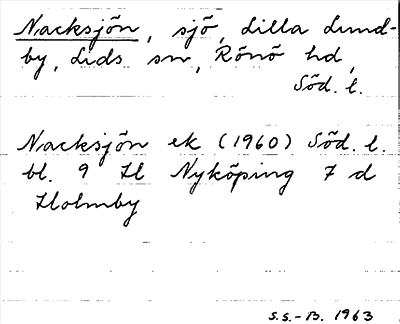 Nacksjön, sjö, Lilla Lund-
by, Lids sn, Rönö hd,
Söd. l.
Nacksjön ek (1960) Söd. l.
bl. 9 H Nyköping 7 d
Holmby
S.S.-B. 1963